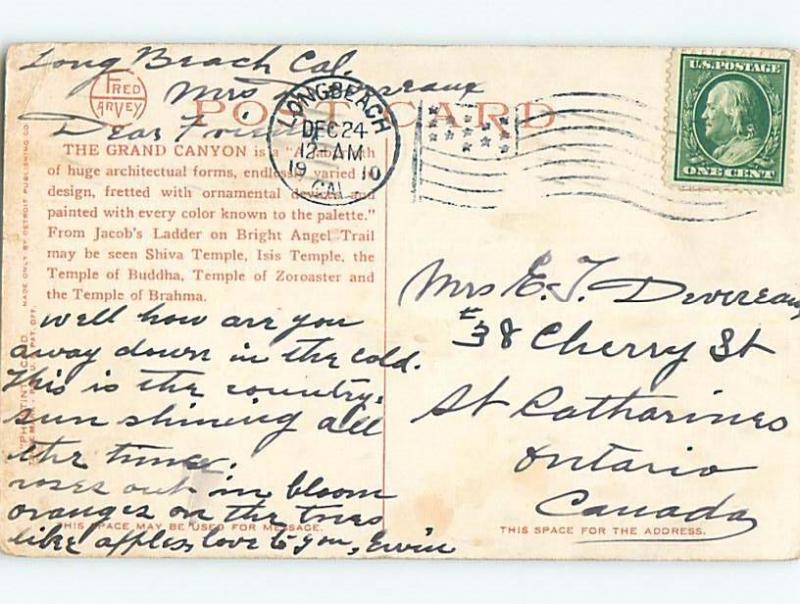 Long Beach Cal.
Mrs Devereaux
Dear Friend
FRED HARVEY
POST CARD
LONG BEACH
DEC 24
12-AM
1910
CAL.
U.S. POSTAGE
ONE CENT
THE GRAND CANYON is a
of huge architectual forms, endlessly varied in
design, fretted with ornamental devices and
painted with every color known to the palette."
From Jacob's Ladder on Bright Angel Trail
may be seen Shiva Temple, Isis Temple, the
Temple of Buddha, Temple of Zoroaster and
the Temple of Brahma.
well how are you
away down in the cold.
This is the country,
sun shining all
the time.
roses out in bloom
oranges on the trees
like apples, love to you,
THIS SPACE MAY BE USED FOR MESSAGE.
MADE ONLY BY DETROIT PUBLISHING CO.
Mrs E. T. Devereaux
#38 Cherry St
St Catharines
Ontario
Canada
THIS SPACE FOR THE ADDRESS.